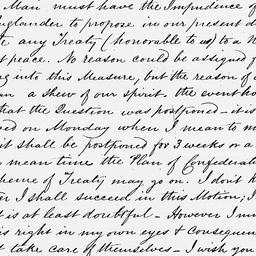 Man must have the Impudence of
nglander to propose in our present d
te any Treaty (honorable to us) to a N
t peace. No reason could be assigned f
g into this Measure, but the reason of a
an a shew of our spirit. the event how
that the Question was postponed - it is
ed on Monday when I mean to m
it shall be postponed for 3 weeks or a
mean time the Plan of Confederat
heme of Treaty may go on. I don't k
r I shall succeed in this Motion; I
t is at least doubtful - However I mu
is right in my own eyes & consequen
t take care of themselves - I wish you